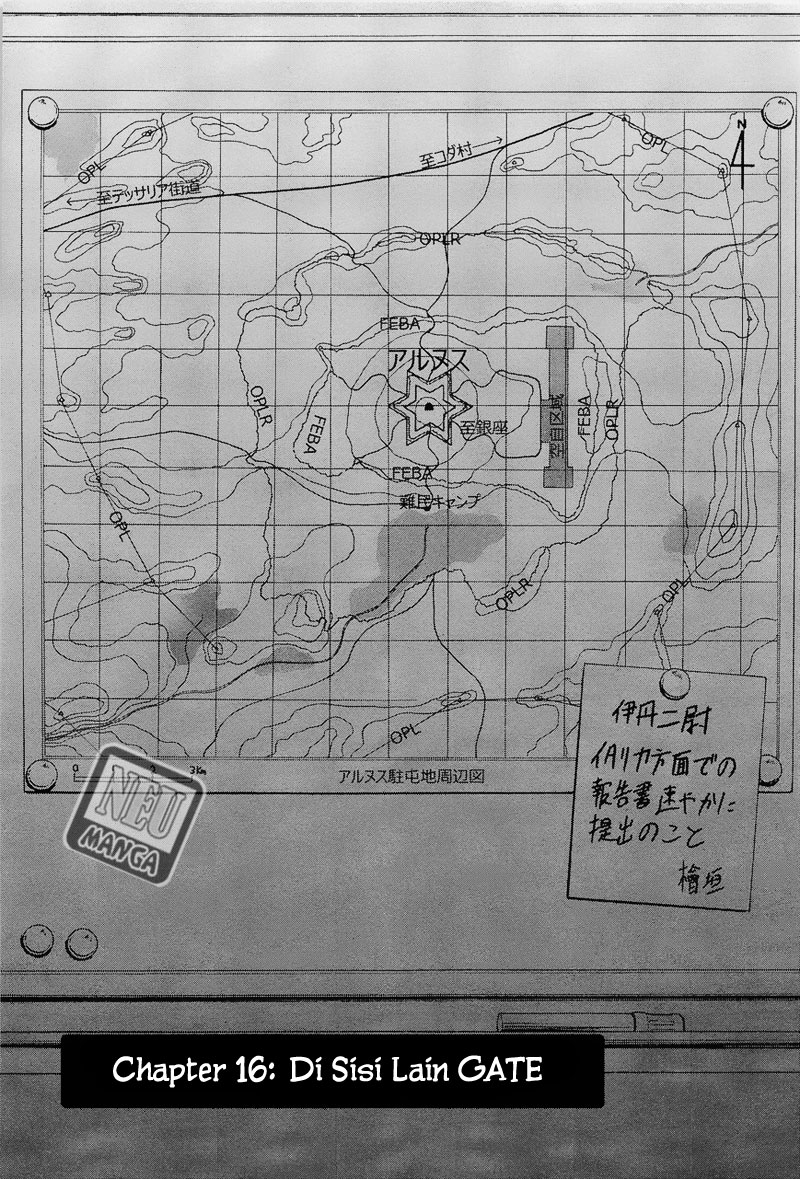 N
OPL
至コダ村
OPL
至テッサリア街道
OPLR
FEBA
アルヌス
OPLR
FEBA
至銀座
空自区域
FEBA
OPLR
FEBA
難民キャンプ
OPL
OPLR
OPL
OPL
0
3Km
アルヌス駐屯地周辺図
伊丹二尉
イタリカ方面での
報告書速やかに
提出のこと
檜垣
NEU
MANGA
Chapter 16: Di Sisi Lain GATE